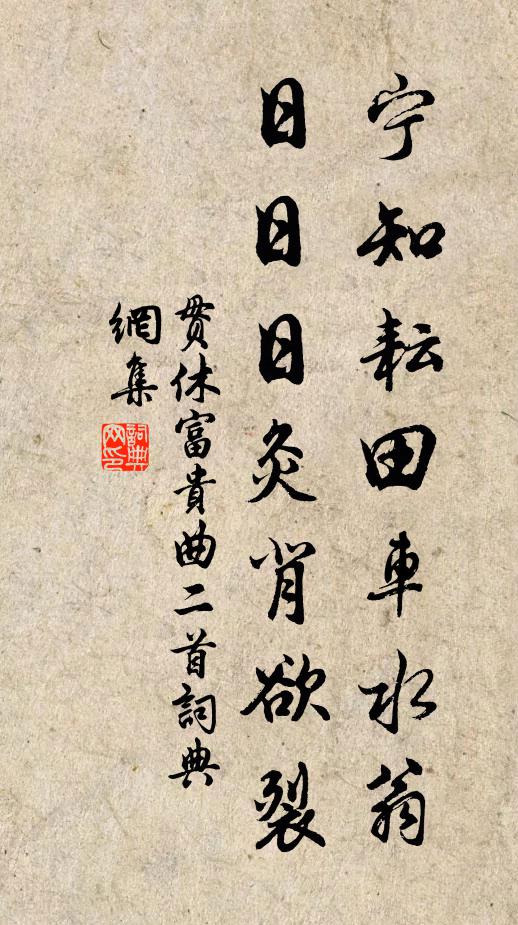 宁知耘田車水翁
日日日灸背欲裂
贯休富貴曲二首詞典
網集
詞典网印